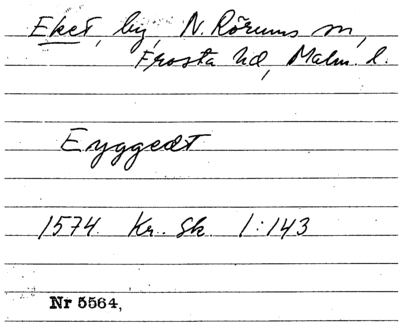 Eket, by, N. Rörums sn,
Frosta hd, Malm. l.
Eyggedt
1574 Kr. Sk. 1:143
Nr 5564,